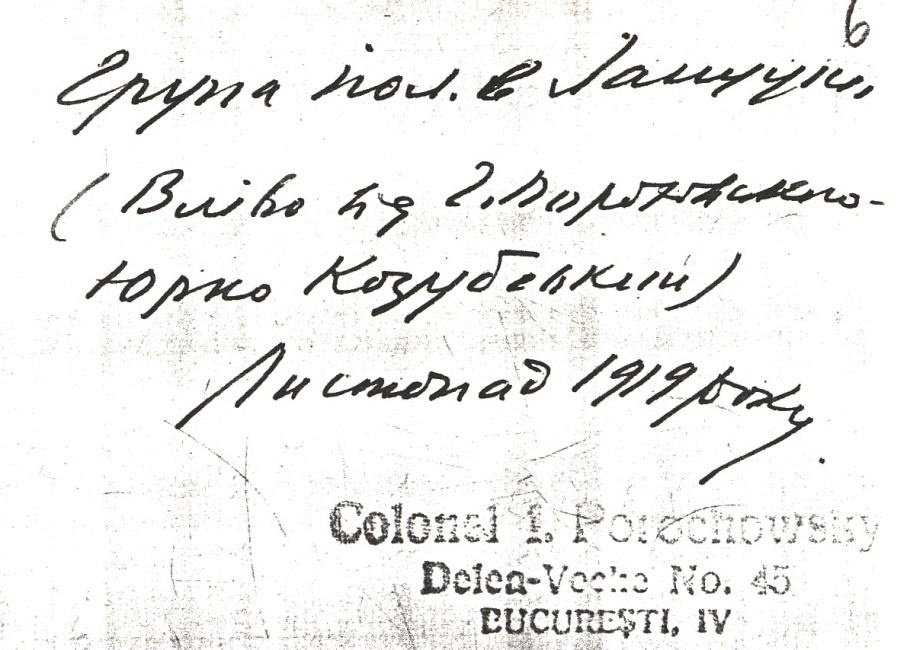 6
Група пол. в Ланцуті,
(Вліво від Г. Пороховського-
Юрко Козубський)
Листопад 1919 року.
Colonel I. Porochowsky
Delea-Veche No. 45
BUCUREŞTI, IV